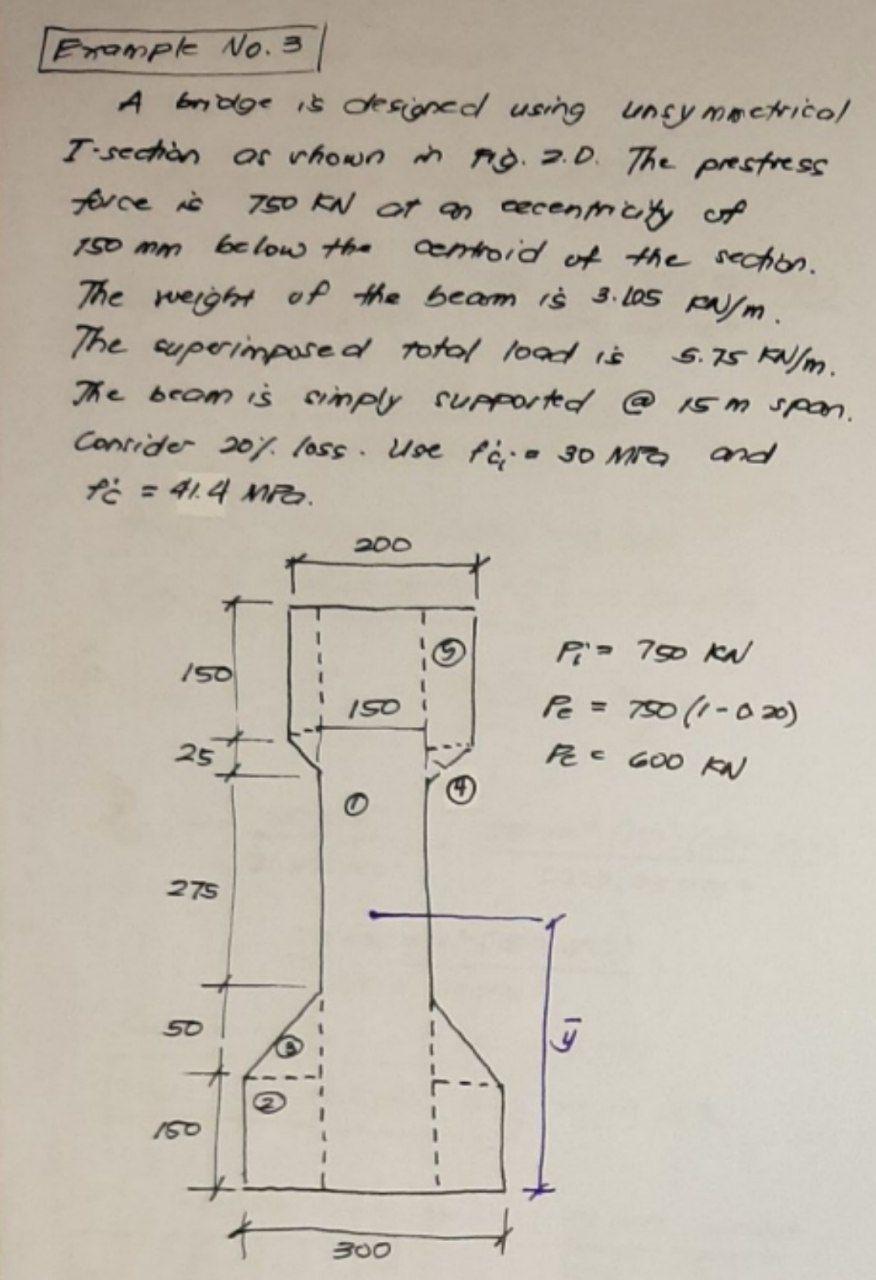 Example No. 3
A bridge is designed using unsymmetrical
I-section as shown in Fig. 2.0. The prestress
force is 750 KN at an eccentricity of
150 mm below the centroid of the section.
The weight of the beam is 3.105 KN/m.
The superimposed total load is 5.75 KN/m.
The beam is simply supported @ 15 m span.
Consider 20% loss. Use f'ci = 30 MPa and
f'c = 41.4 MPa.
200
150
25
275
50
150
150
①
②
③
④
⑤
Pi = 750 KN
Pe = 750 (1 - 0.20)
Pe = 600 KN
ȳ
300